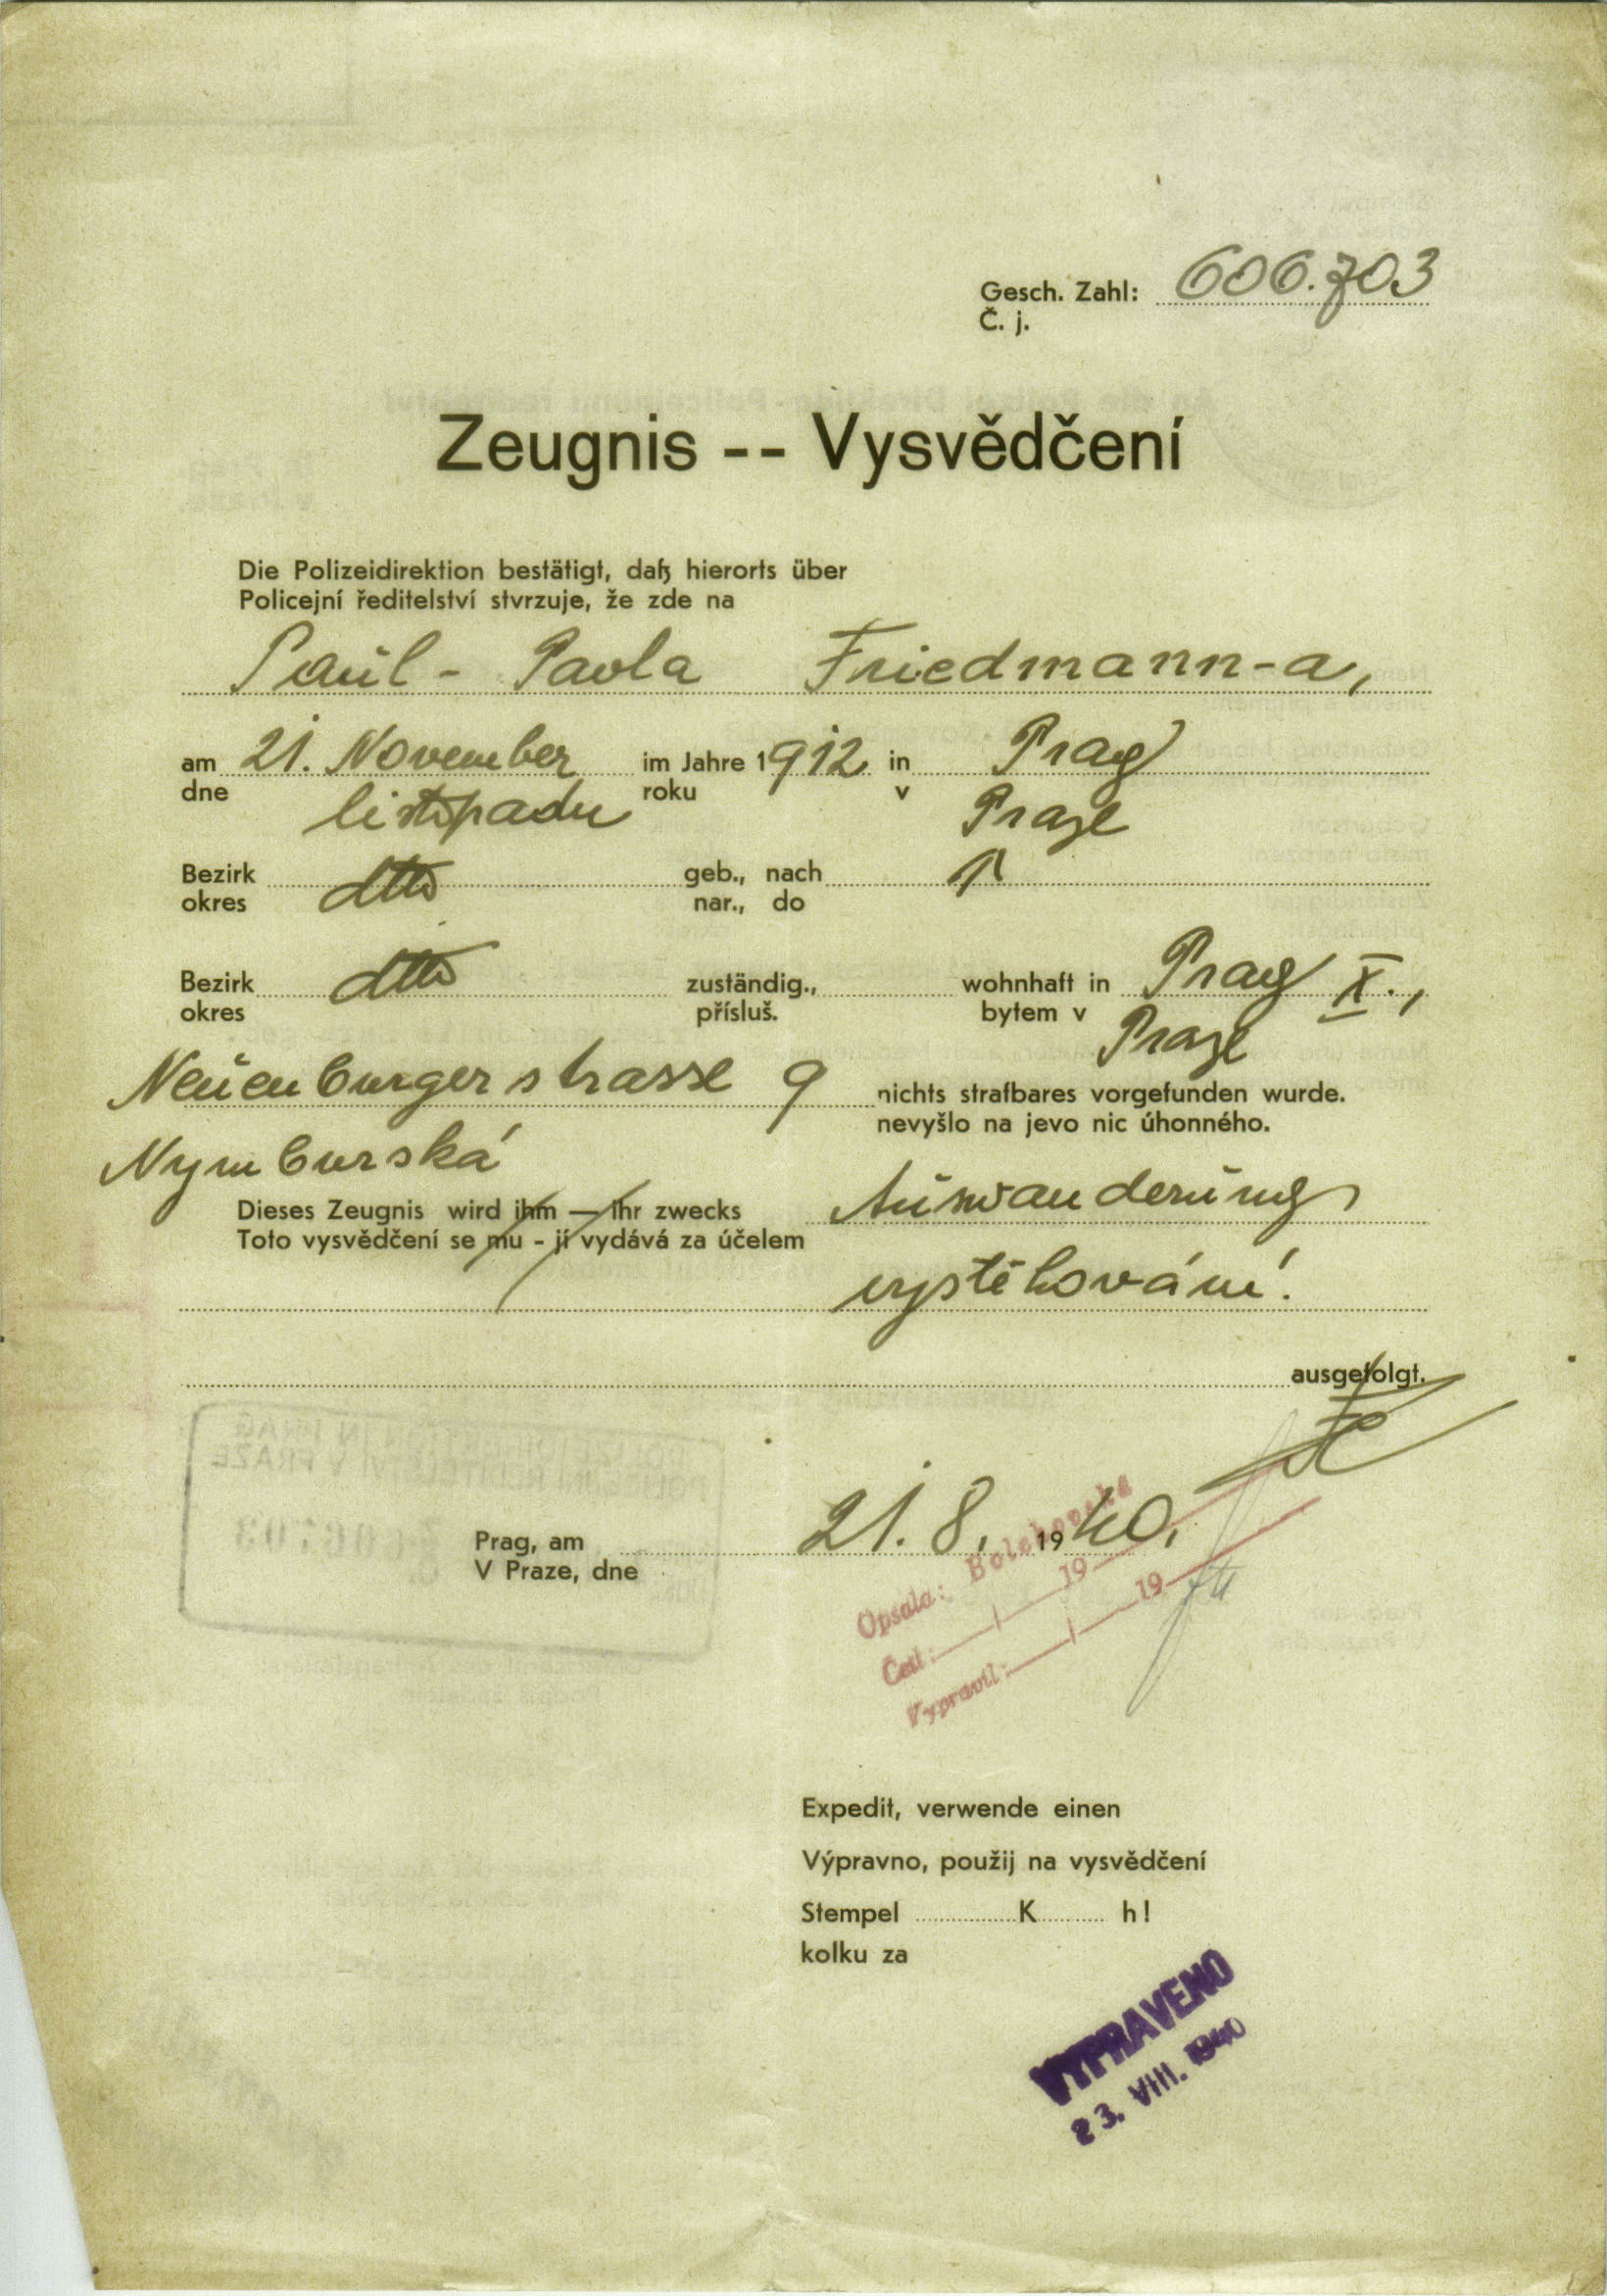 Gesch. Zahl: 606.703
Č. j.
Zeugnis -- Vysvědčení
Die Polizeidirektion bestätigt, daß hierorts über
Policejní ředitelství stvrzuje, že zde na
Paul - Pavla Friedmann-a,
am 21. November im Jahre 1912 in Prag
dne listopadu roku v Praze
Bezirk dtto geb., nach
okres nar., do
Bezirk dtto zuständig., wohnhaft in Prag X.,
okres přísluš. bytem v Praze
Neuenburgerstrasse 9 nichts strafbares vorgefunden wurde.
nevyšlo na jevo nic úhonného.
Nymburská
Dieses Zeugnis wird ihm — ihr zwecks Auswanderung
Toto vysvědčení se mu - jí vydává za účelem
vystěhování.
ausgefolgt.
Prag, am 21. 8. 1940.
V Praze, dne
Opsala: Bolehovská
Četl: 19
Vypravil: 19
Expedit, verwende einen
Výpravno, použij na vysvědčení
Stempel K h!
kolku za
VYPRAVENO
23. VIII. 1940